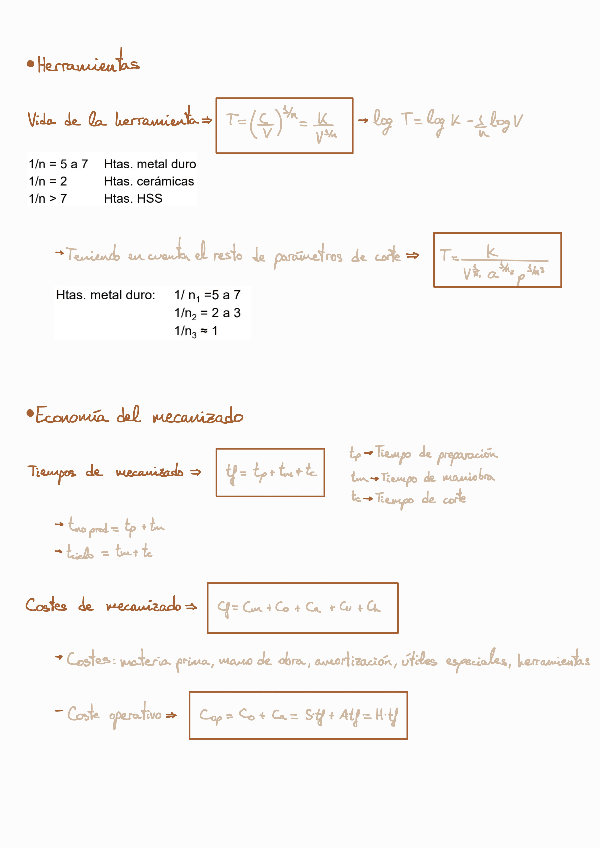 •Herramientas
Vida de la herramienta ⇒ T = (C/V)^1/n = K/V^1/n → log T = log K - 1/n log V
1/n = 5 a 7 Htas. metal duro
1/n = 2 Htas. cerámicas
1/n > 7 Htas. HSS
→ Teniendo en cuenta el resto de parámetros de corte ⇒ T = K / (V^1/n₁ a^1/n₂ p^1/n₃)
Htas. metal duro: 1/ n₁ =5 a 7
1/n₂ = 2 a 3
1/n₃ ≈ 1
•Economía del mecanizado
Tiempos de mecanizado ⇒ tf = tp + tm + tc
tp → Tiempo de preparación
tm → Tiempo de maniobra
tc → Tiempo de corte
→ tno prod = tp + tm
→ tciclo = tm + tc
Costes de mecanizado ⇒ Cf = Cm + Co + Ca + Cu + Ch
→ Costes: materia prima, mano de obra, amortización, útiles especiales, herramientas
- Coste operativo ⇒ Cop = Co + Ca = S·tf + A·tf = H·tf